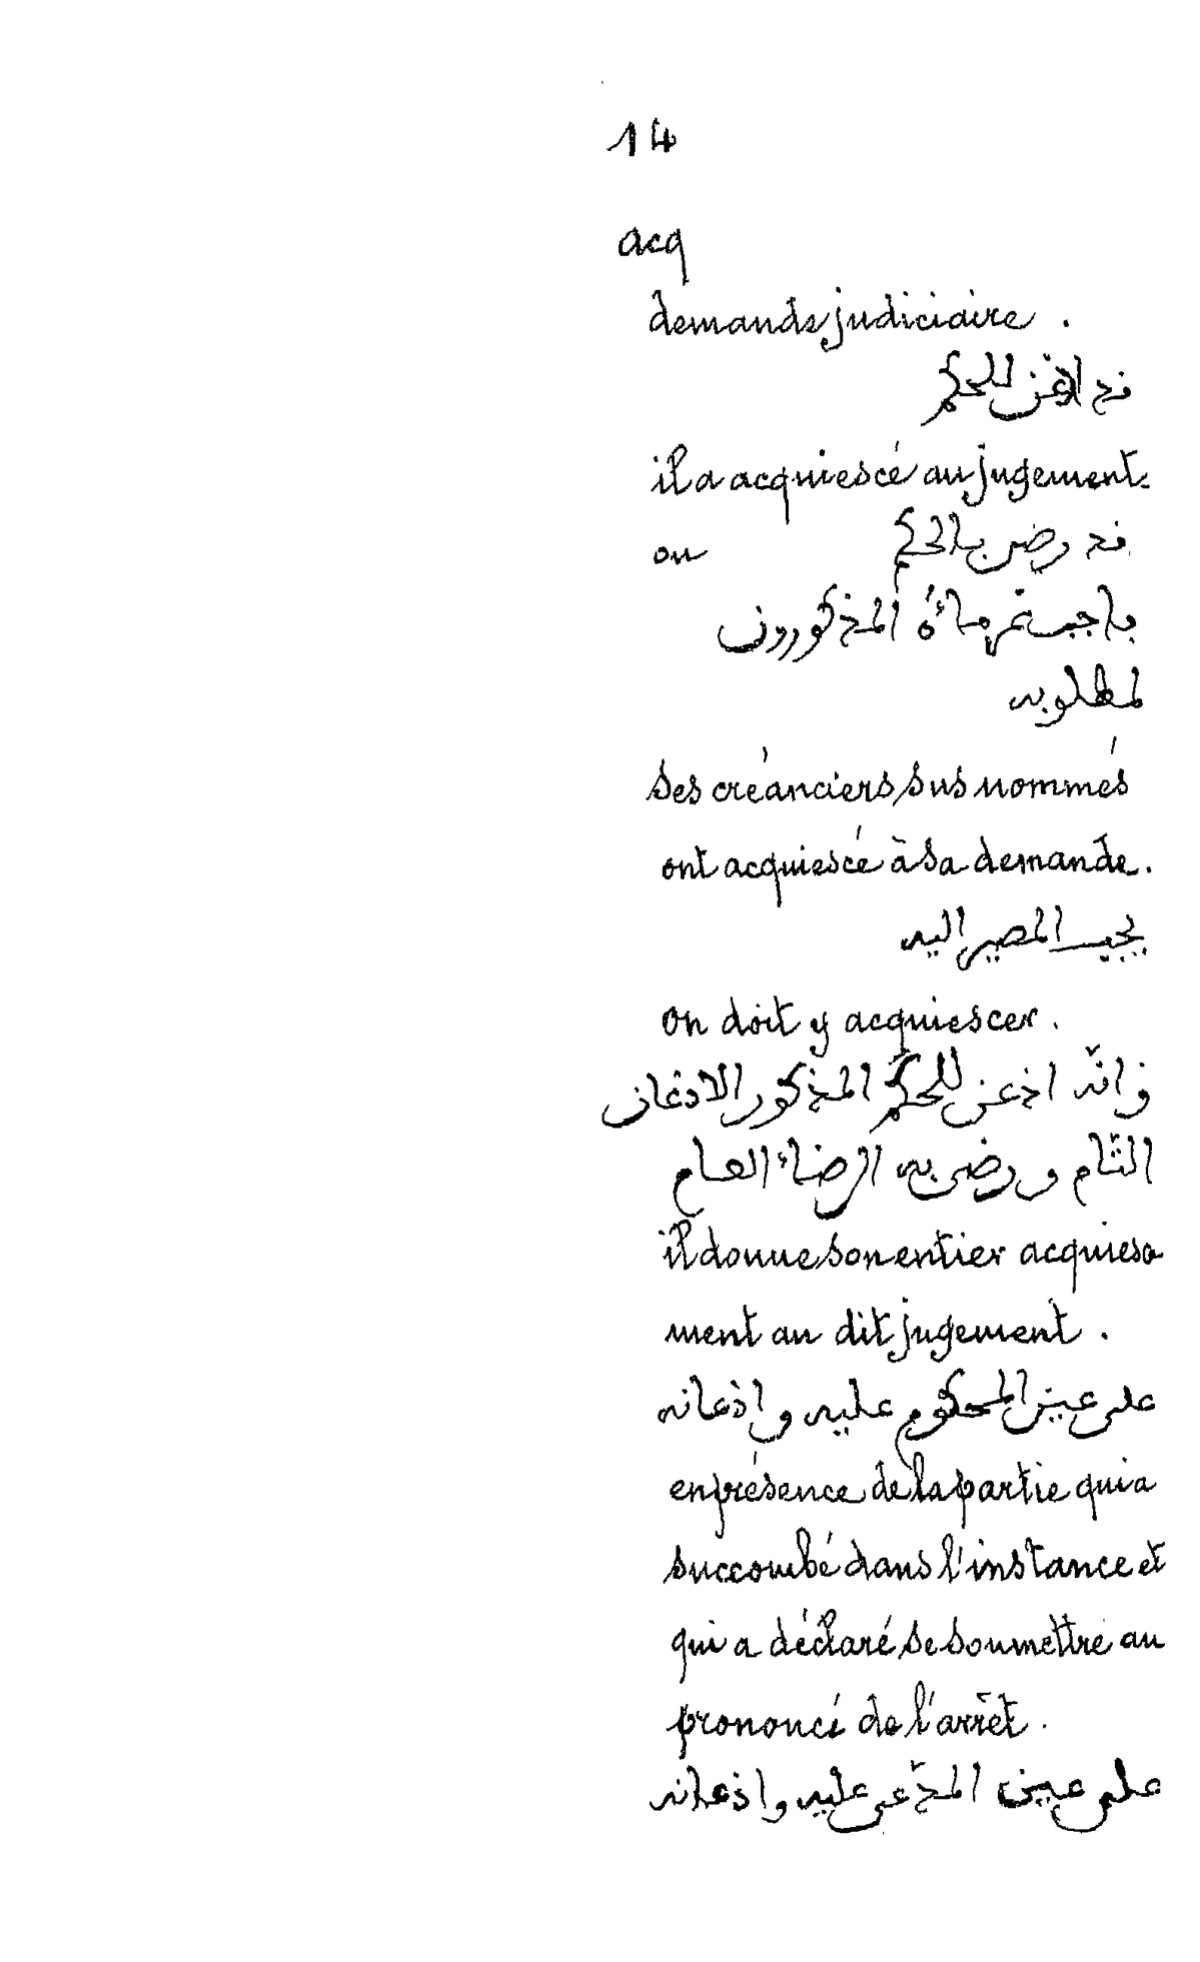 14
acq
demande judiciaire.
قد اذعن للحكم
il a acquiescé au jugement.
ou قد رضى بالحكم
المذكورون
لمطلوبه
ses créanciers sus nommés
ont acquiescé à sa demande.
يجب المصير اليه
on doit y acquiescer.
وانّه اذعن للحكم المذكور الاذعان
التّام و رضى به الرضاء العام
il donne son entier
ment au dit jugement.
على عين المحكوم عليه واذعانه
en présence de la partie qui a
succombé dans l'instance et
qui a déclaré se soumettre au
prononcé de l'arrêt.
على عين المدّعى عليه واذعانه